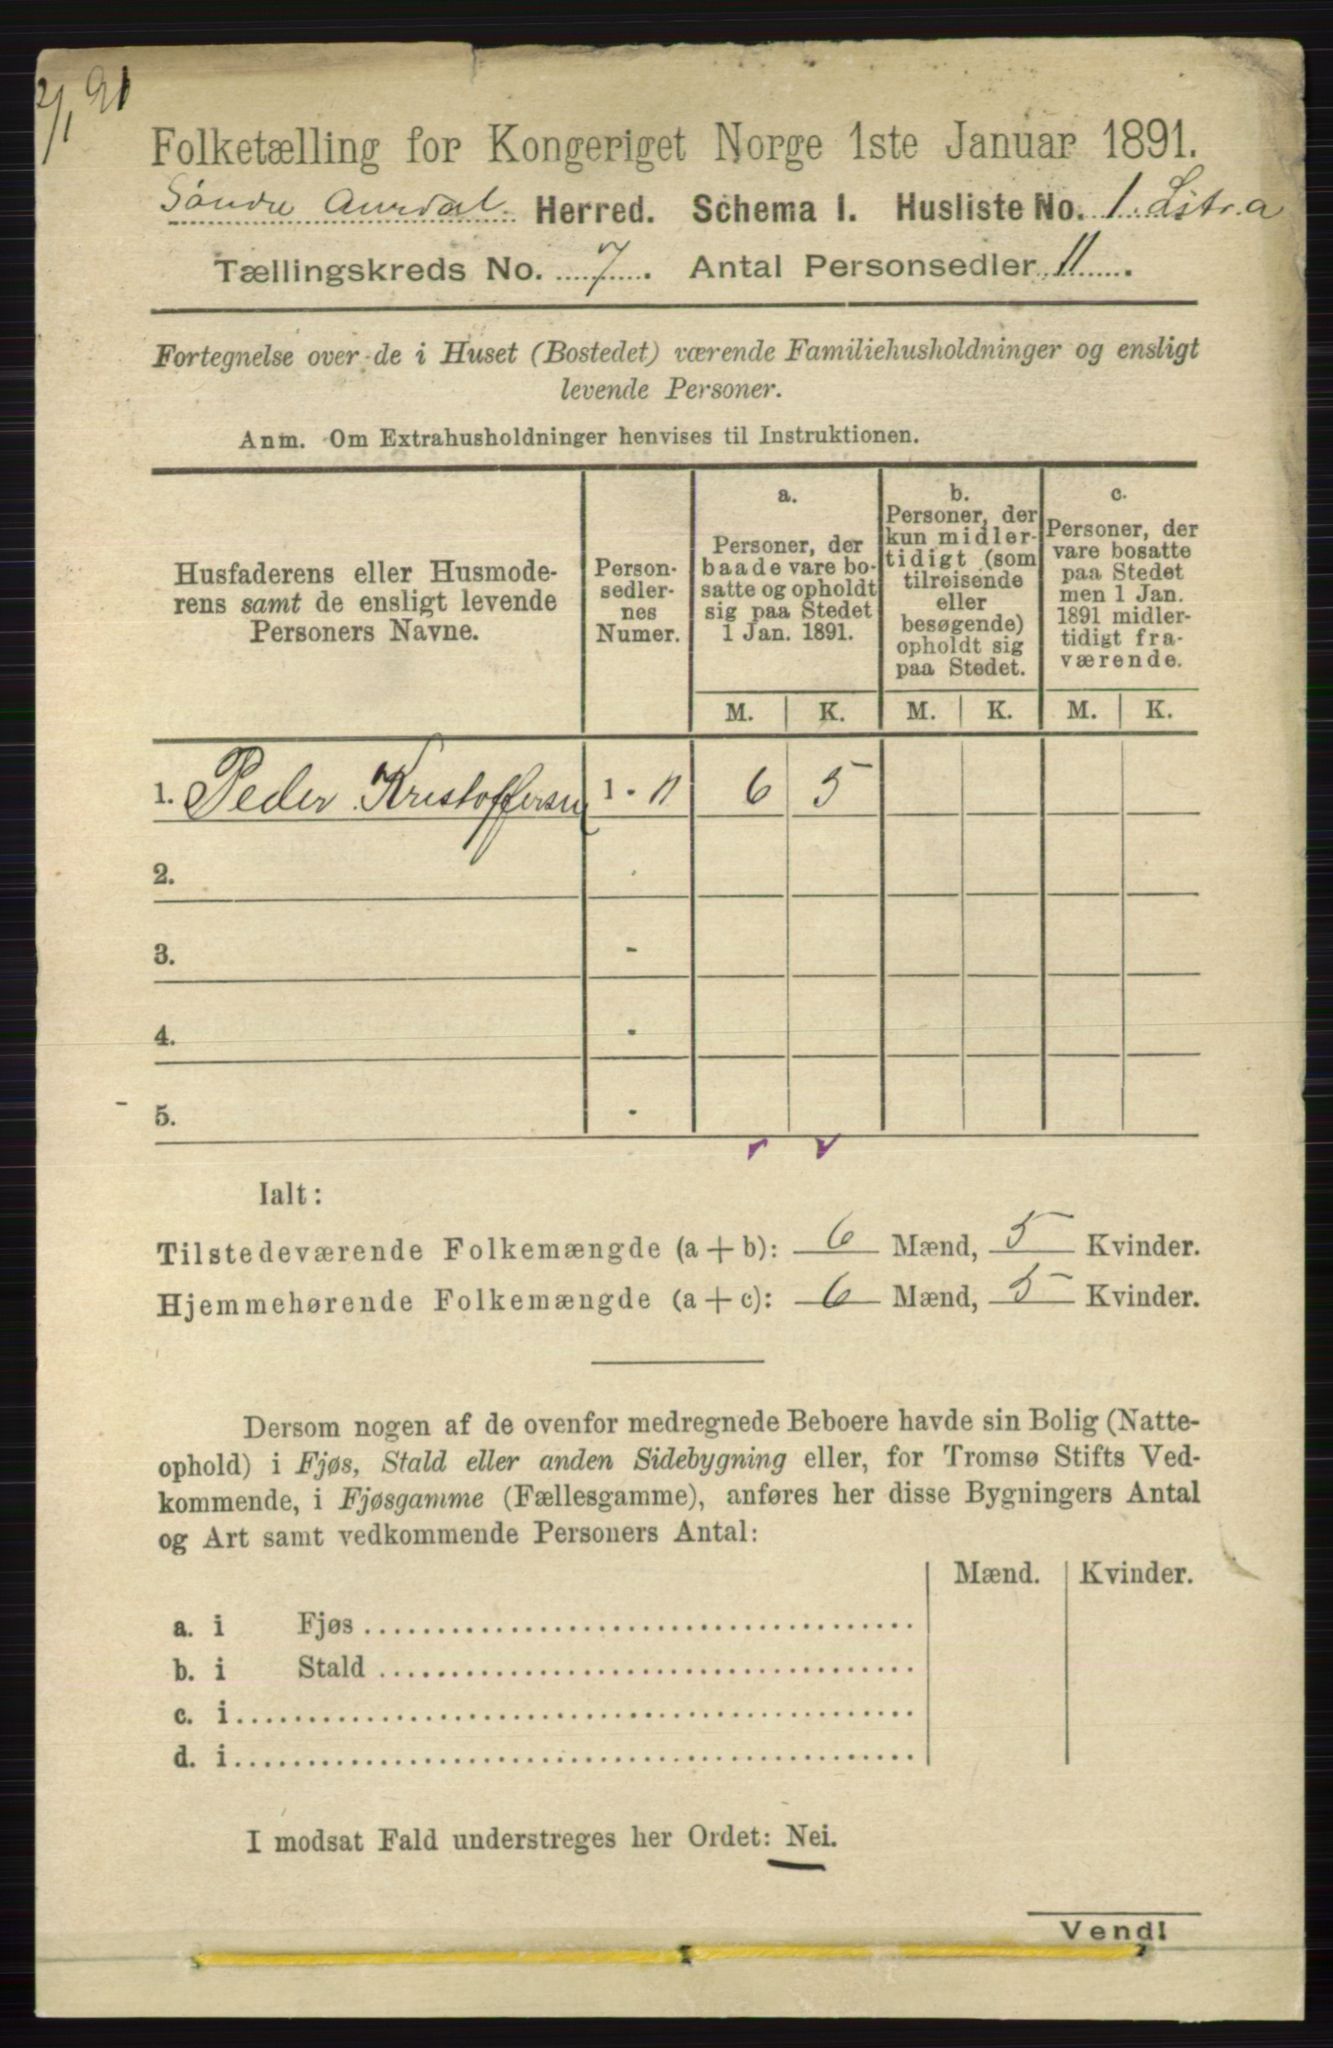 2/1 91
Folketælling for Kongeriget Norge 1ste Januar 1891.
Søndre Aurdal Herred. Schema I. Husliste No. 1 Litr. a
Tællingskreds No. 7. Antal Personsedler 11.
Fortegnelse over de i Huset (Bostedet) værende Familiehusholdninger og ensligt
levende Personer.
Anm. Om Extrahusholdninger henvises til Instruktionen.
Husfaderens eller Husmode-
rens samt de ensligt levende
Personers Navne.
Person-
sedler-
nes
Numer.
a.
Personer, der
baade vare bo-
satte og opholdt
sig paa Stedet
1 Jan. 1891.
b.
Personer, der
kun midler-
tidigt (som
tilreisende
eller
besøgende)
opholdt sig
paa Stedet.
c.
Personer, der
vare bosatte
paa Stedet
men 1 Jan.
1891 midler-
tidigt fra-
værende.
M. K. M. K. M. K.
1. Peder Kristoffersen 1 - 11 6 5
2.
3. -
4. -
5. -
Ialt:
Tilstedeværende Folkemængde (a + b): 6 Mænd, 5 Kvinder.
Hjemmehørende Folkemængde (a + c): 6 Mænd, 5 Kvinder.
Dersom nogen af de ovenfor medregnede Beboere havde sin Bolig (Natte-
ophold) i Fjøs, Stald eller anden Sidebygning eller, for Tromsø Stifts Ved-
kommende, i Fjøsgamme (Fællesgamme), anføres her disse Bygningers Antal
og Art samt vedkommende Personers Antal:
Mænd. Kvinder.
a. i Fjøs
b. i Stald
c. i
d. i
I modsat Fald understreges her Ordet: Nei.
Vend!